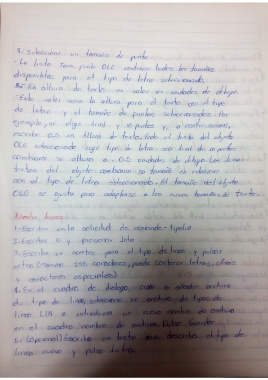 4. Seleccione un tamaño de punto
- La lista Tam. punto OLE contiene todos los tamaños
disponibles para el tipo de letra seleccionado.
5- En altura de texto un valor en unidades de dibujo.
Este valor será la altura para el texto con el tipo
de letra y el tamaño de puntos seleccionados. Por
ejemplo, si elige arial y 10 puntos y, a continuación,
escribe 0.2 en Altura de texto, todo el texto del objeto
OLE seleccionado cuyo tipo de letra sea arial de 10 puntos
cambiará su altura a 0.2 unidades de dibujo. Los demás
textos del objeto cambian su tamaño en relación
con el tipo de letras seleccionado. El tamaño del objeto
OLE se ajusta para adaptarse a los nuevos tamaños de texto.
1- Escribir en la solicitud de comando - tipolin
2- Escribir S y presionar Intro
3- Escribir un nombre para el tipo de línea y pulsar
intro (máximo 255 caracteres, puede contener letras, cifras
y caracteres especiales)
4. En el cuadro de diálogo, crear o añadir archivo
de tipo de línea, seleccione un archivo de tipos de
línea LIN o introduzca un nuevo nombre de archivo
en el cuadro nombre de archivo. Pulse Guardar
5- (Opcional) Escriba un texto que describa el tipo de
línea nuevo y pulse Intro.